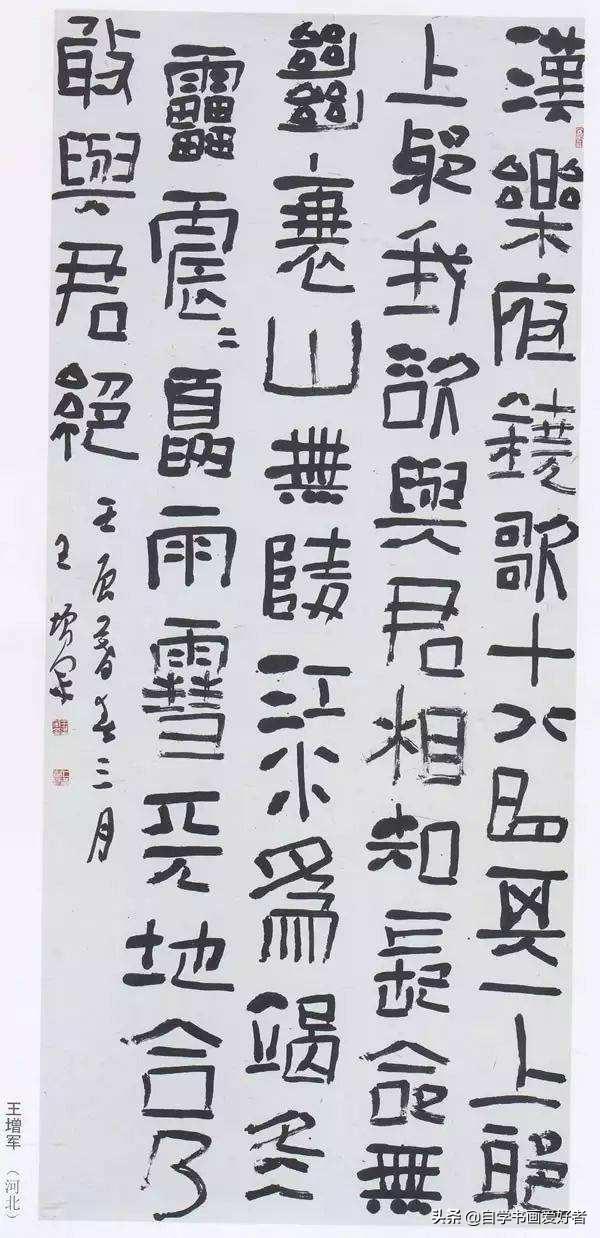 漢樂府鐃歌十八曲其一上邪
上邪我欲與君相知長命無
絕衰山無陵江水為竭冬
靁震〻夏雨雪天地合乃
敢與君絕
壬辰暮春三月
王增軍
王增军（河北）
头条@自学书画爱好者